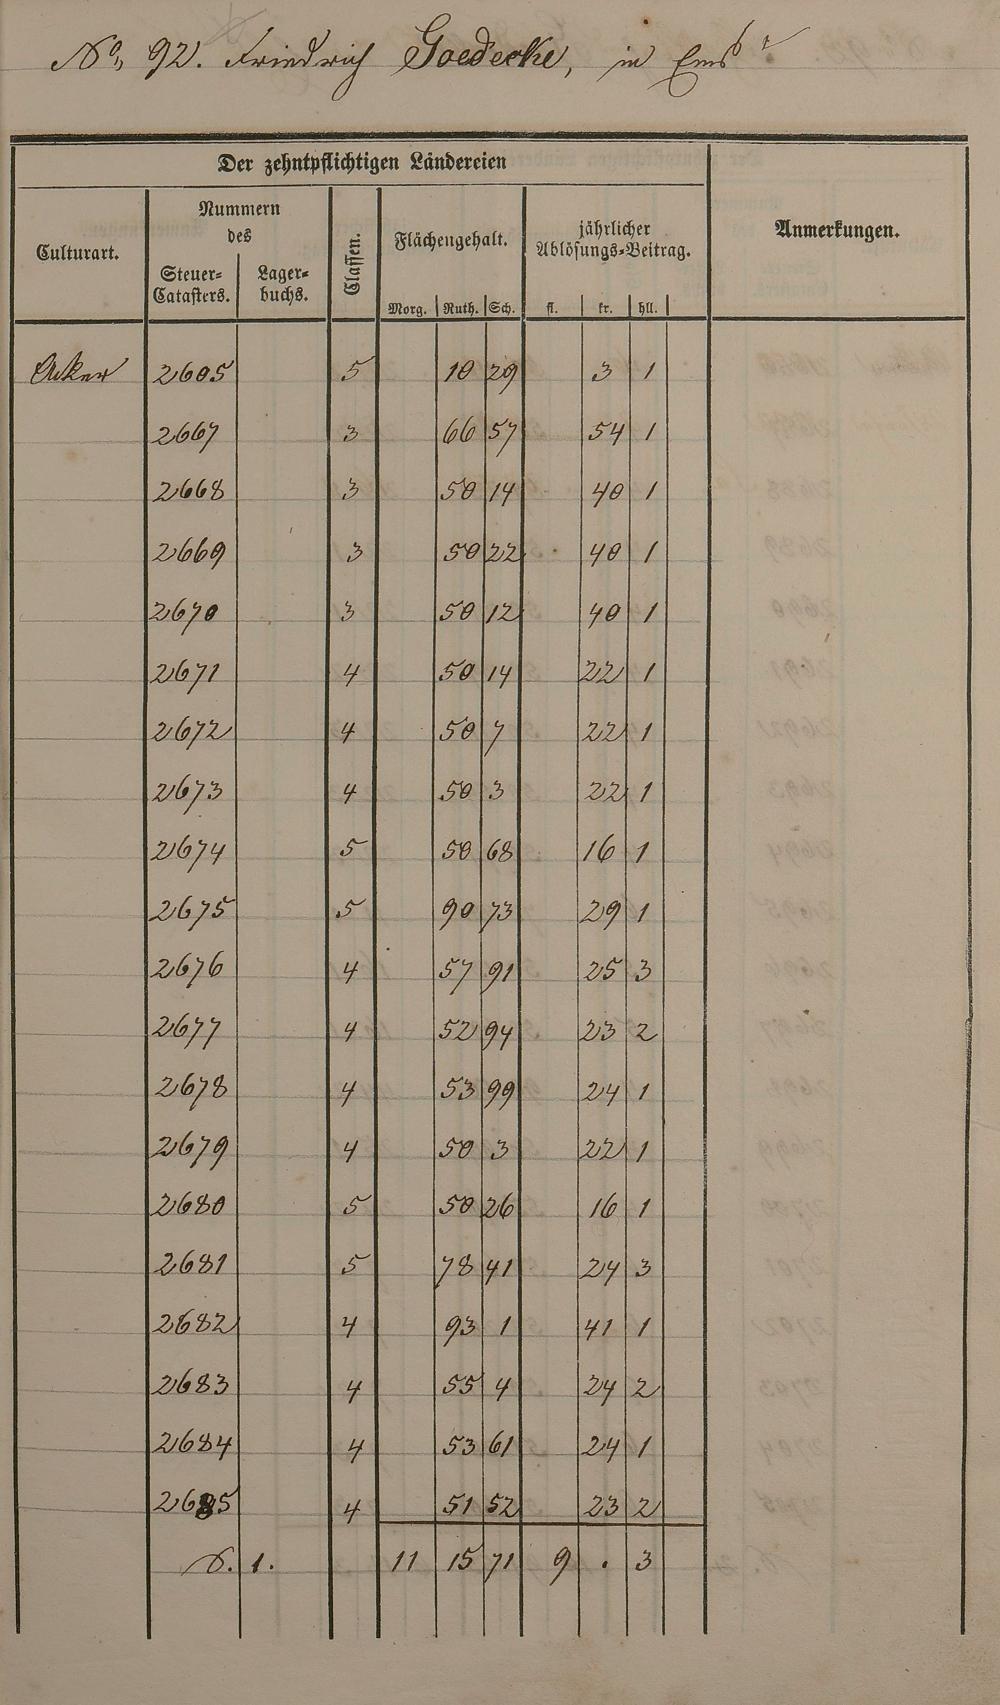 No. 92. Friedrich Goedecke, in Ems
Der zehntpflichtigen Ländereien
Culturart. Nummern des Steuer-Catasters. Lager-buchs. Classen. Flächengehalt. Morg. Ruth. Sch. jährlicher Ablösungs-Beitrag. fl. kr. hll. Anmerkungen.
Acker 2605 5 10 29 3 1
2667 3 66 57 54 1
2668 3 50 14 40 1
2669 3 50 22 40 1
2670 3 50 12 40 1
2671 4 50 14 22 1
2672 4 50 7 22 1
2673 4 50 3 22 1
2674 5 50 68 16 1
2675 5 90 73 29 1
2676 4 57 91 25 3
2677 4 52 94 23 2
2678 4 53 99 24 1
2679 4 50 3 22 1
2680 5 50 26 16 1
2681 5 78 41 24 3
2682 4 93 1 41 1
2683 4 55 4 24 2
2684 4 53 61 24 1
2685 4 51 52 23 2
S. 1. 11 15 71 9 . 3